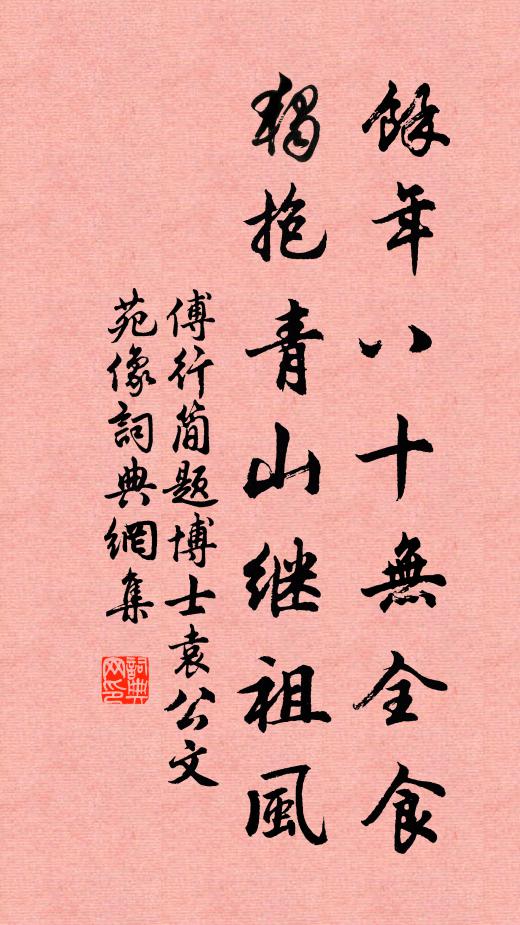 餘年八十無全食
獨抱青山继祖風
傅行简題博士袁公文
苑像詞典網集
詞典网印